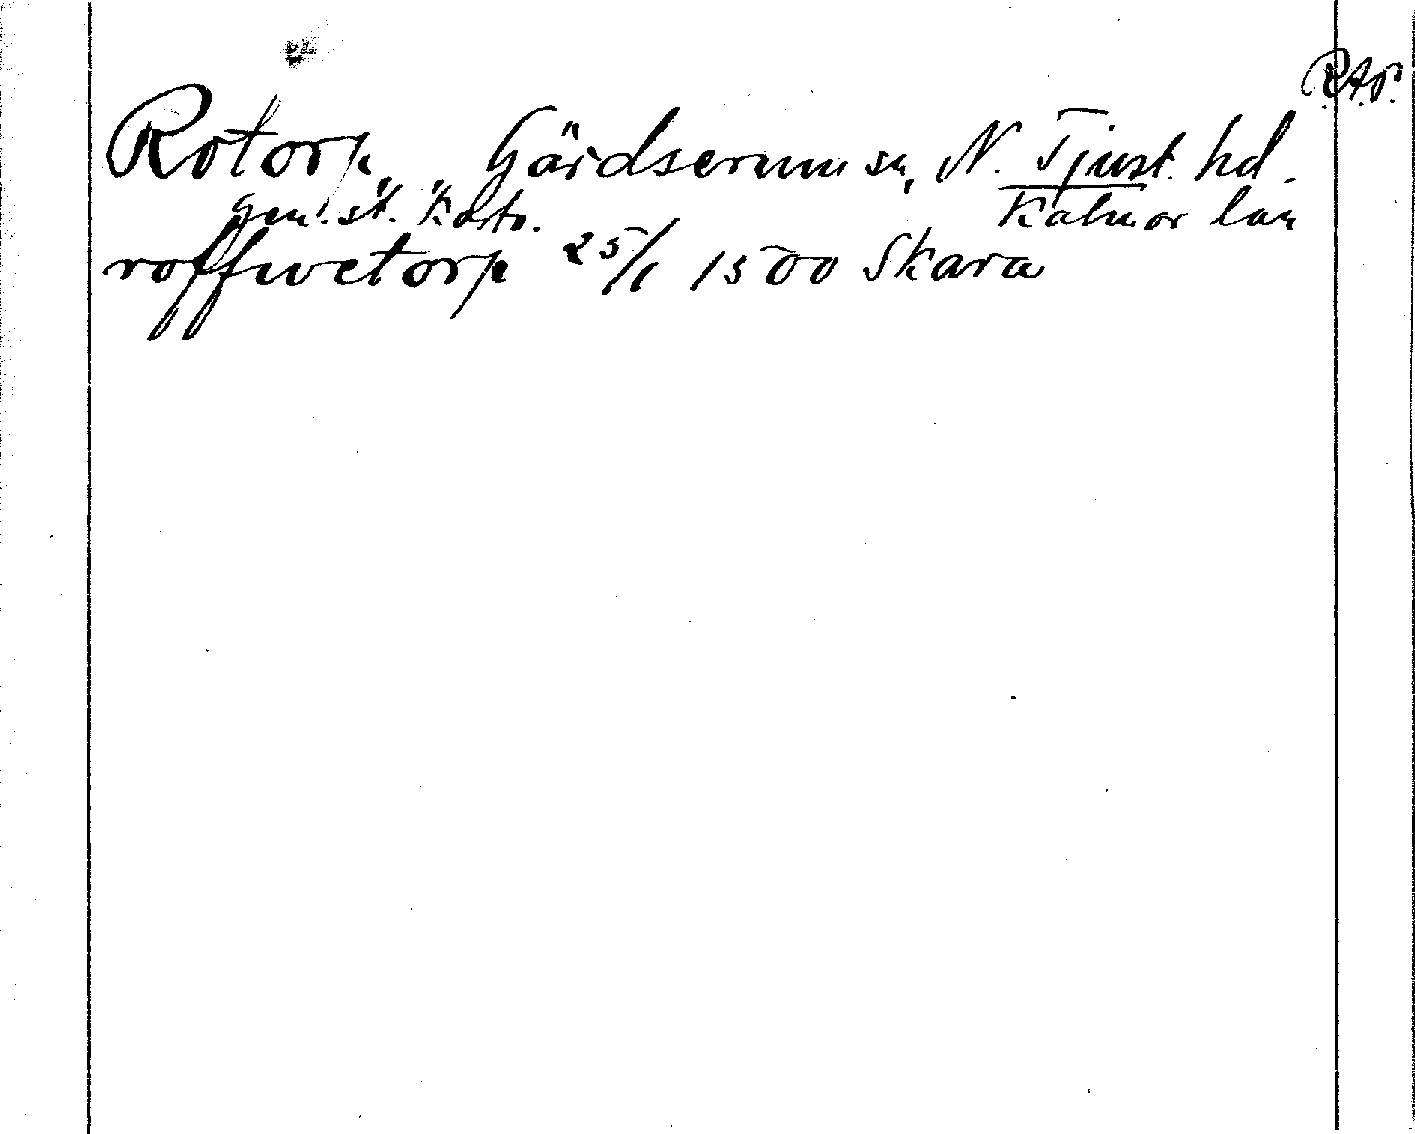 R.A.P.
Rotorp, Gärdserum sn, N. Tjust. hd.
gen. st. Karto. Kalmar län
roffwetorp 25/1 1500 Skara